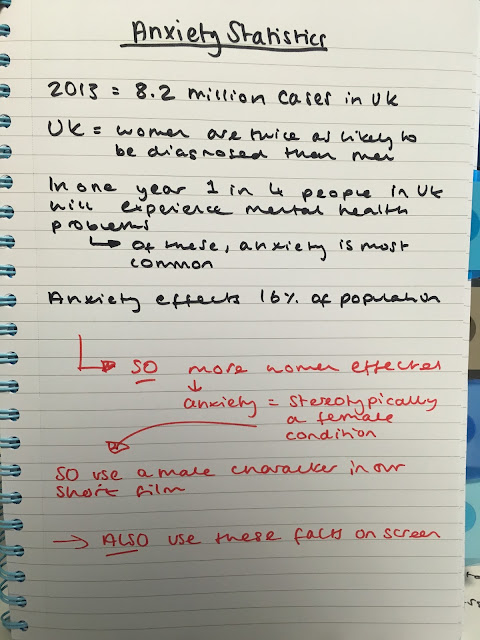 Anxiety Statistics
2013 = 8.2 million cases in UK
UK = women are twice as likely to
be diagnosed than men
In one year 1 in 4 people in UK
will experience mental health
problems
↳ of these, anxiety is most
common
Anxiety effects 16% of population
↳ SO more women effected
↓
anxiety = stereotypically
a female
condition
SO use a male character in our
short film
→ ALSO use these facts on screen